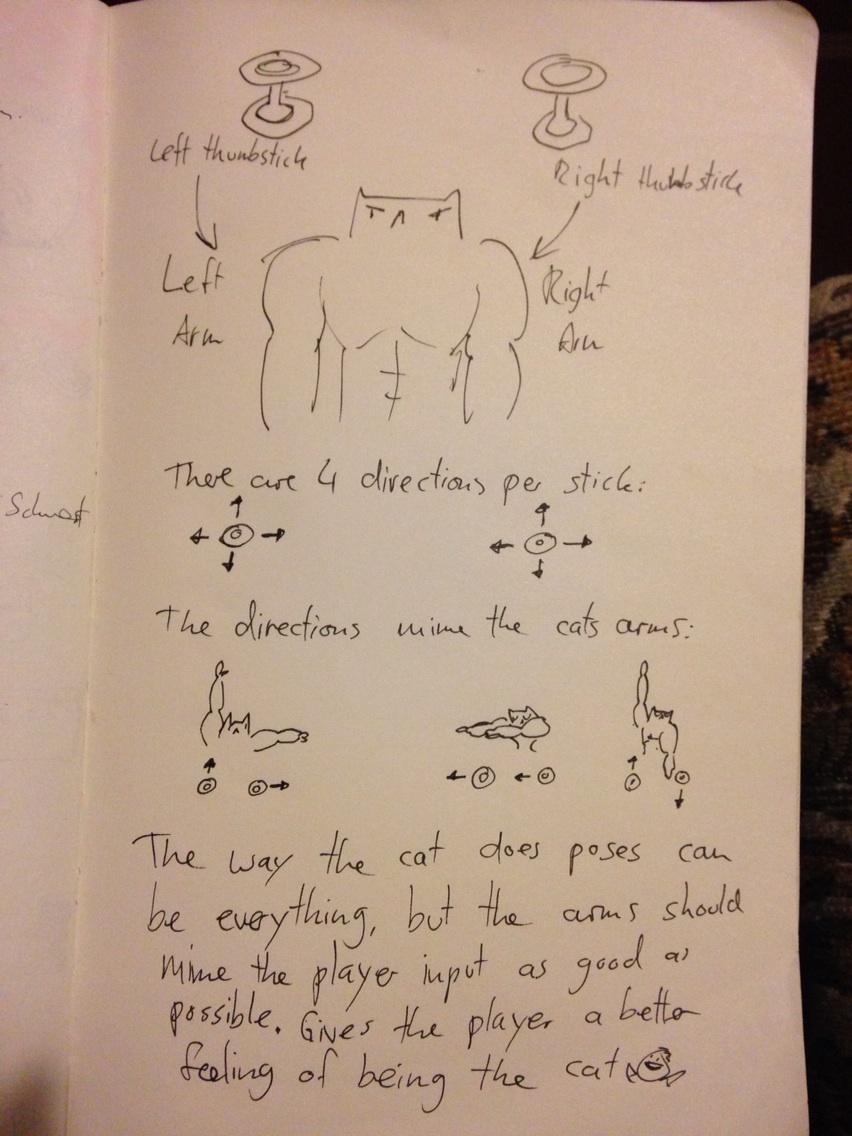 Left thumbstick
Right thumbstick
Left
Arm
Right
Arm
There are 4 directions per stick:
The directions mime the cats arms:
The way the cat does poses can
be everything, but the arms should
mime the player input as good as
possible. Gives the player a better
feeling of being the cat